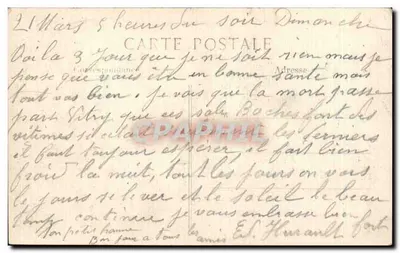 21 Mars 5 heures du soir Dimanche
CARTE POSTALE
Voila 3 jour que je ne soit rien mais je
Correspondance Adresse
pense que vous etes en bonne santé mais
tout vas bien je vois que la mort passe
par Vitry que ces sales Boches font des
vitimes si cela les derniers
il faut toujour esperer il fait bien
froid la nuit, tout les jours on vois
le jours se lever et le soleil le beau
temp continue je vous embrasse bien
ton petit homme fort
Bon jour a tous les amis Ed. Hurault